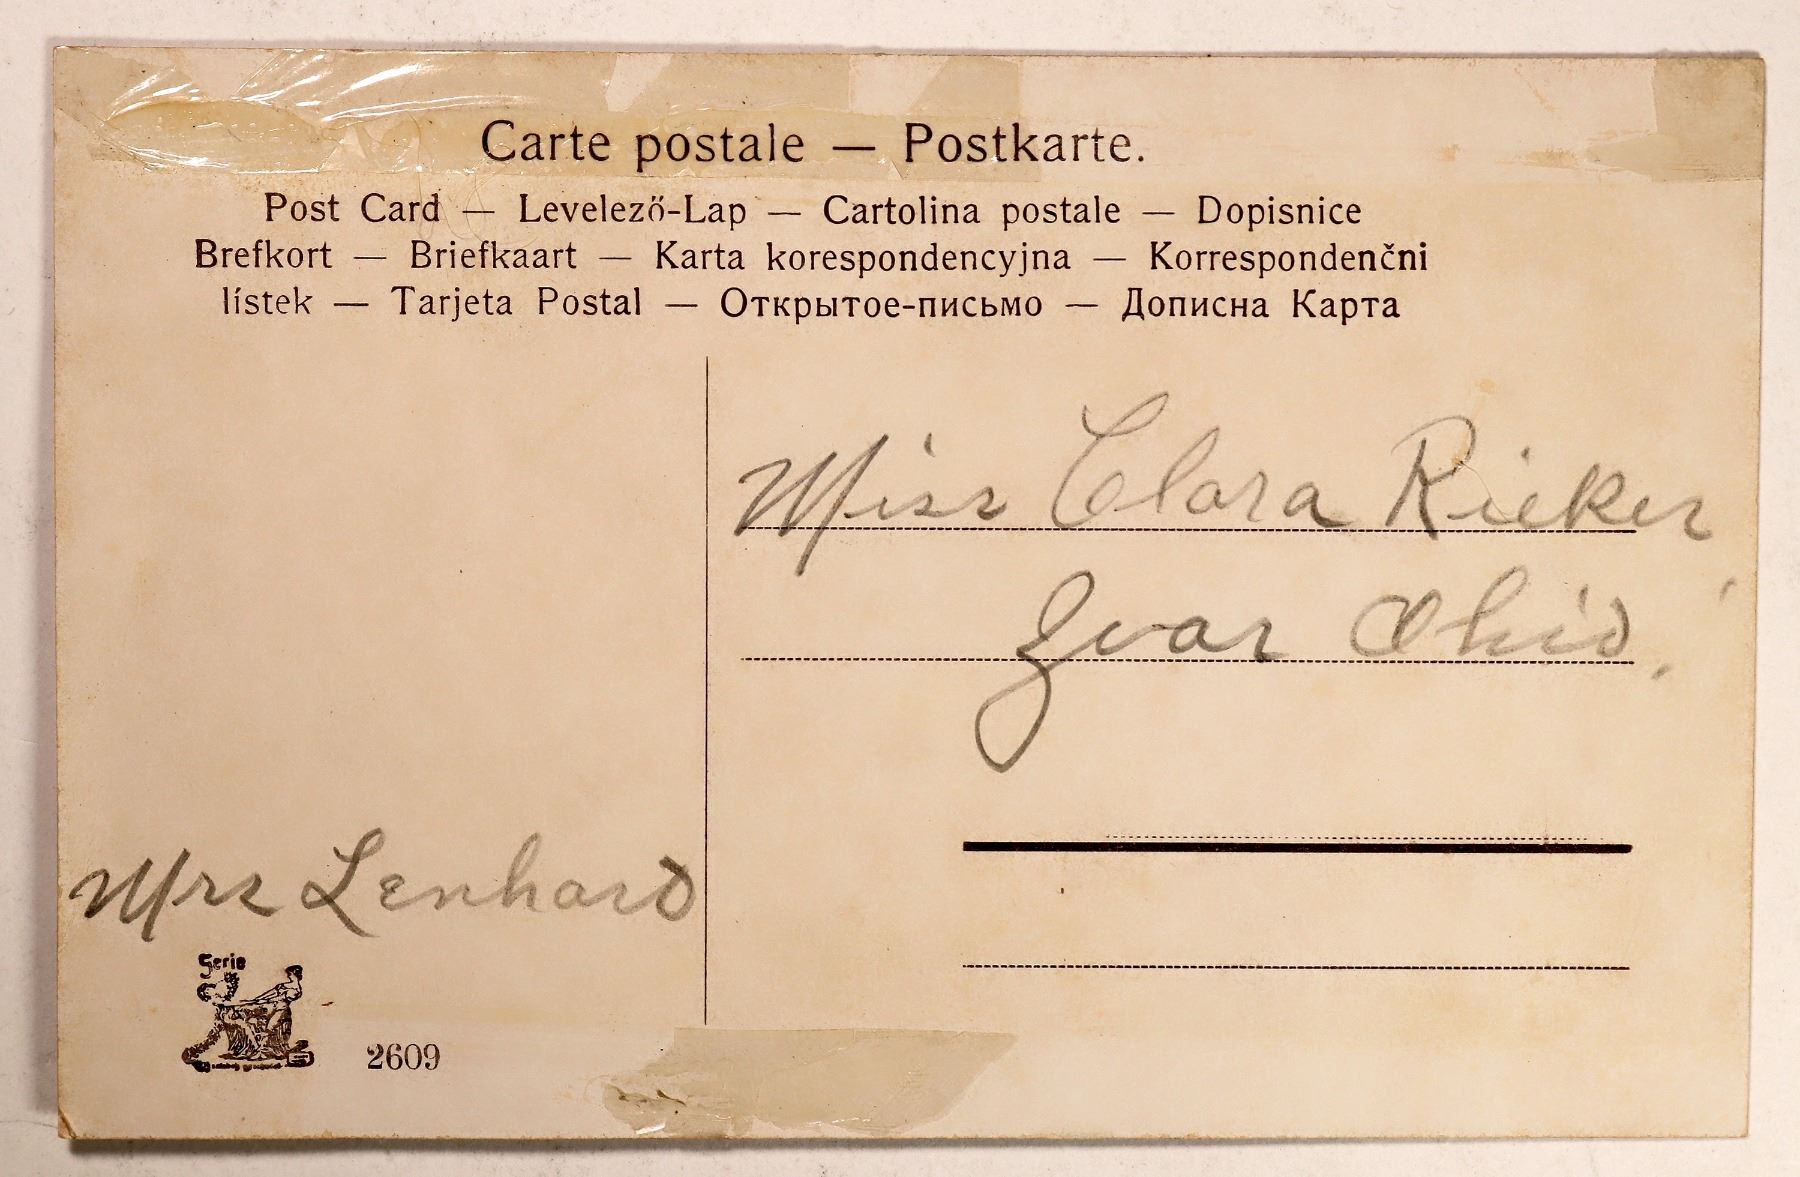 Carte postale — Postkarte.
Post Card — Levelező-Lap — Cartolina postale — Dopisnice
Brefkort — Briefkaart — Karta korespondencyjna — Korrespondenčni
lístek — Tarjeta Postal — Открытое-письмо — Дописна Карта
Miss Clara Rieker
Ohio.
Mrs Lenhard
Serie
2609